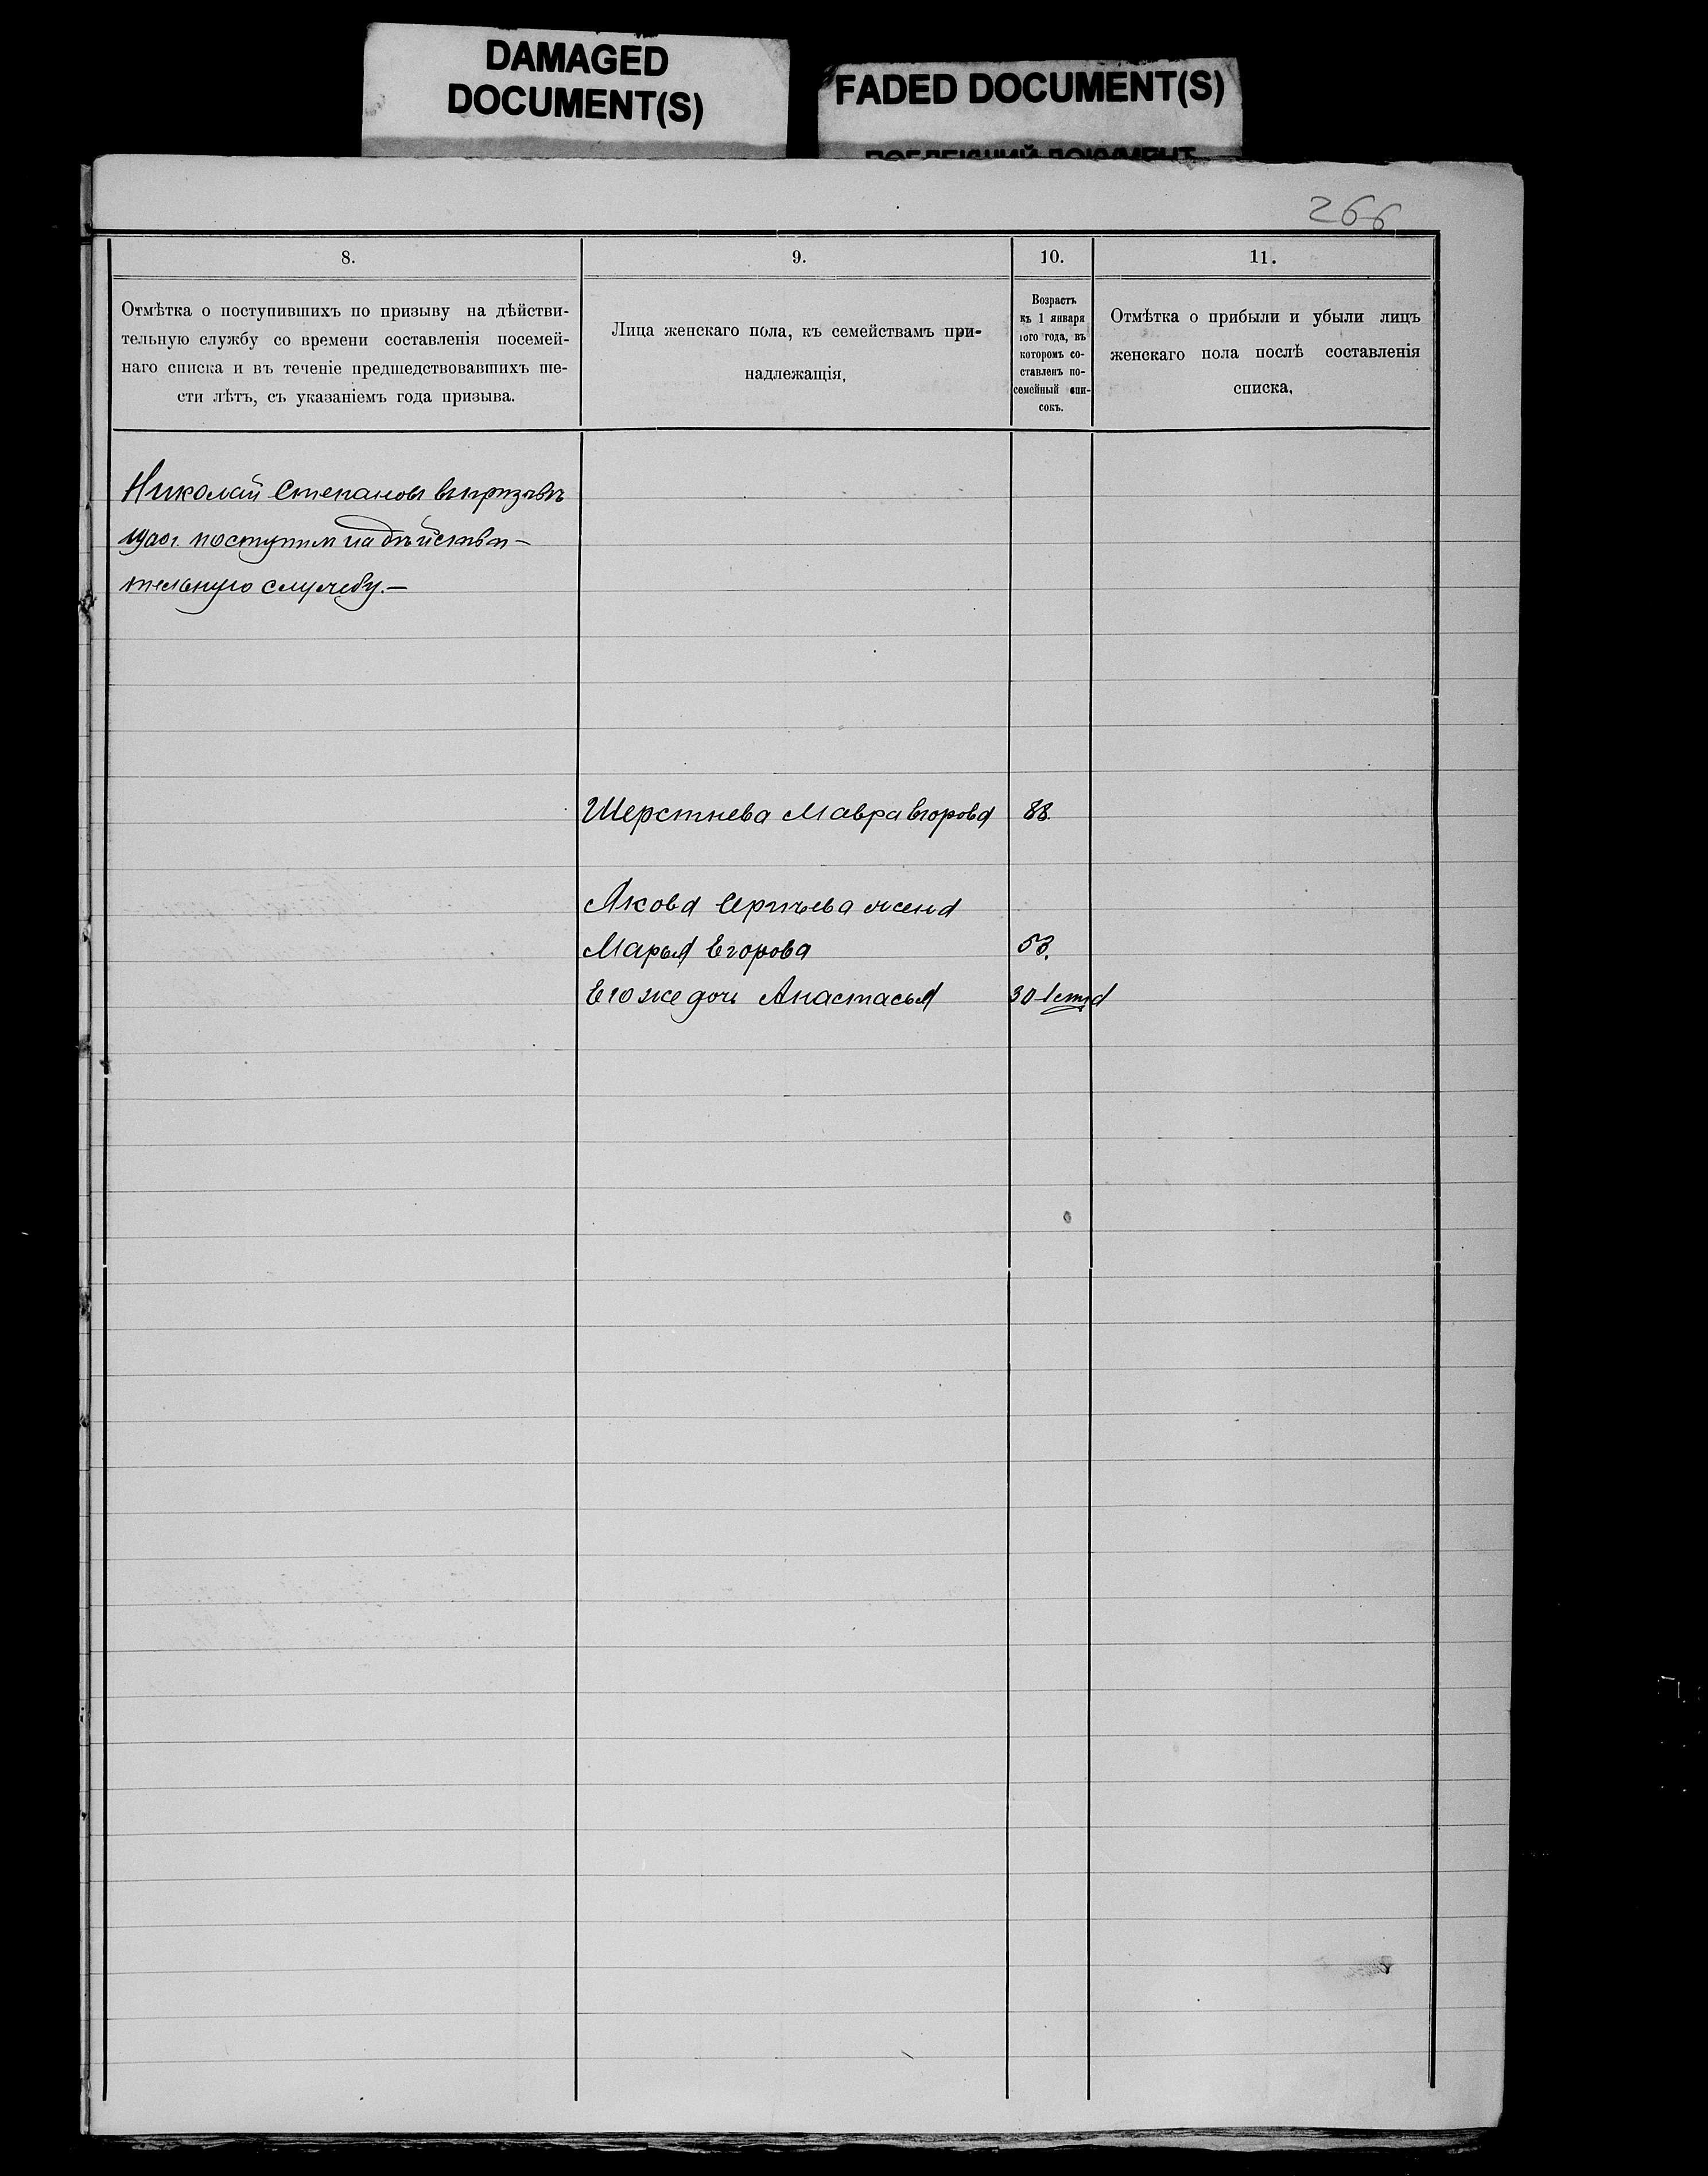 DAMAGED
DOCUMENT(S)
FADED DOCUMENT(S)
266
8.
9.
10.
11.
Отмѣтка о поступившихъ по призыву на дѣйстви-
тельную службу со времени составленія посемей-
наго списка и въ теченіе предшедствовавшихъ ше-
сти лѣтъ, съ указаніемъ года призыва.
Лица женскаго пола, къ семействамъ при-
надлежащія,
Возрастъ
къ 1 января
того года, въ
которомъ со-
ставленъ по-
семейный спи-
сокъ.
Отмѣтка о прибыли и убыли лицъ
женскаго пола послѣ составленія
списка.
Николай Степановъ въ призывъ
1900г. поступил на дѣйстви-
тельную службу.—
Шерстнева Мавра Егорова 88.
Якова жена
Марья Егорова 53.
Его же дочь Анастасья 30 лѣтъ